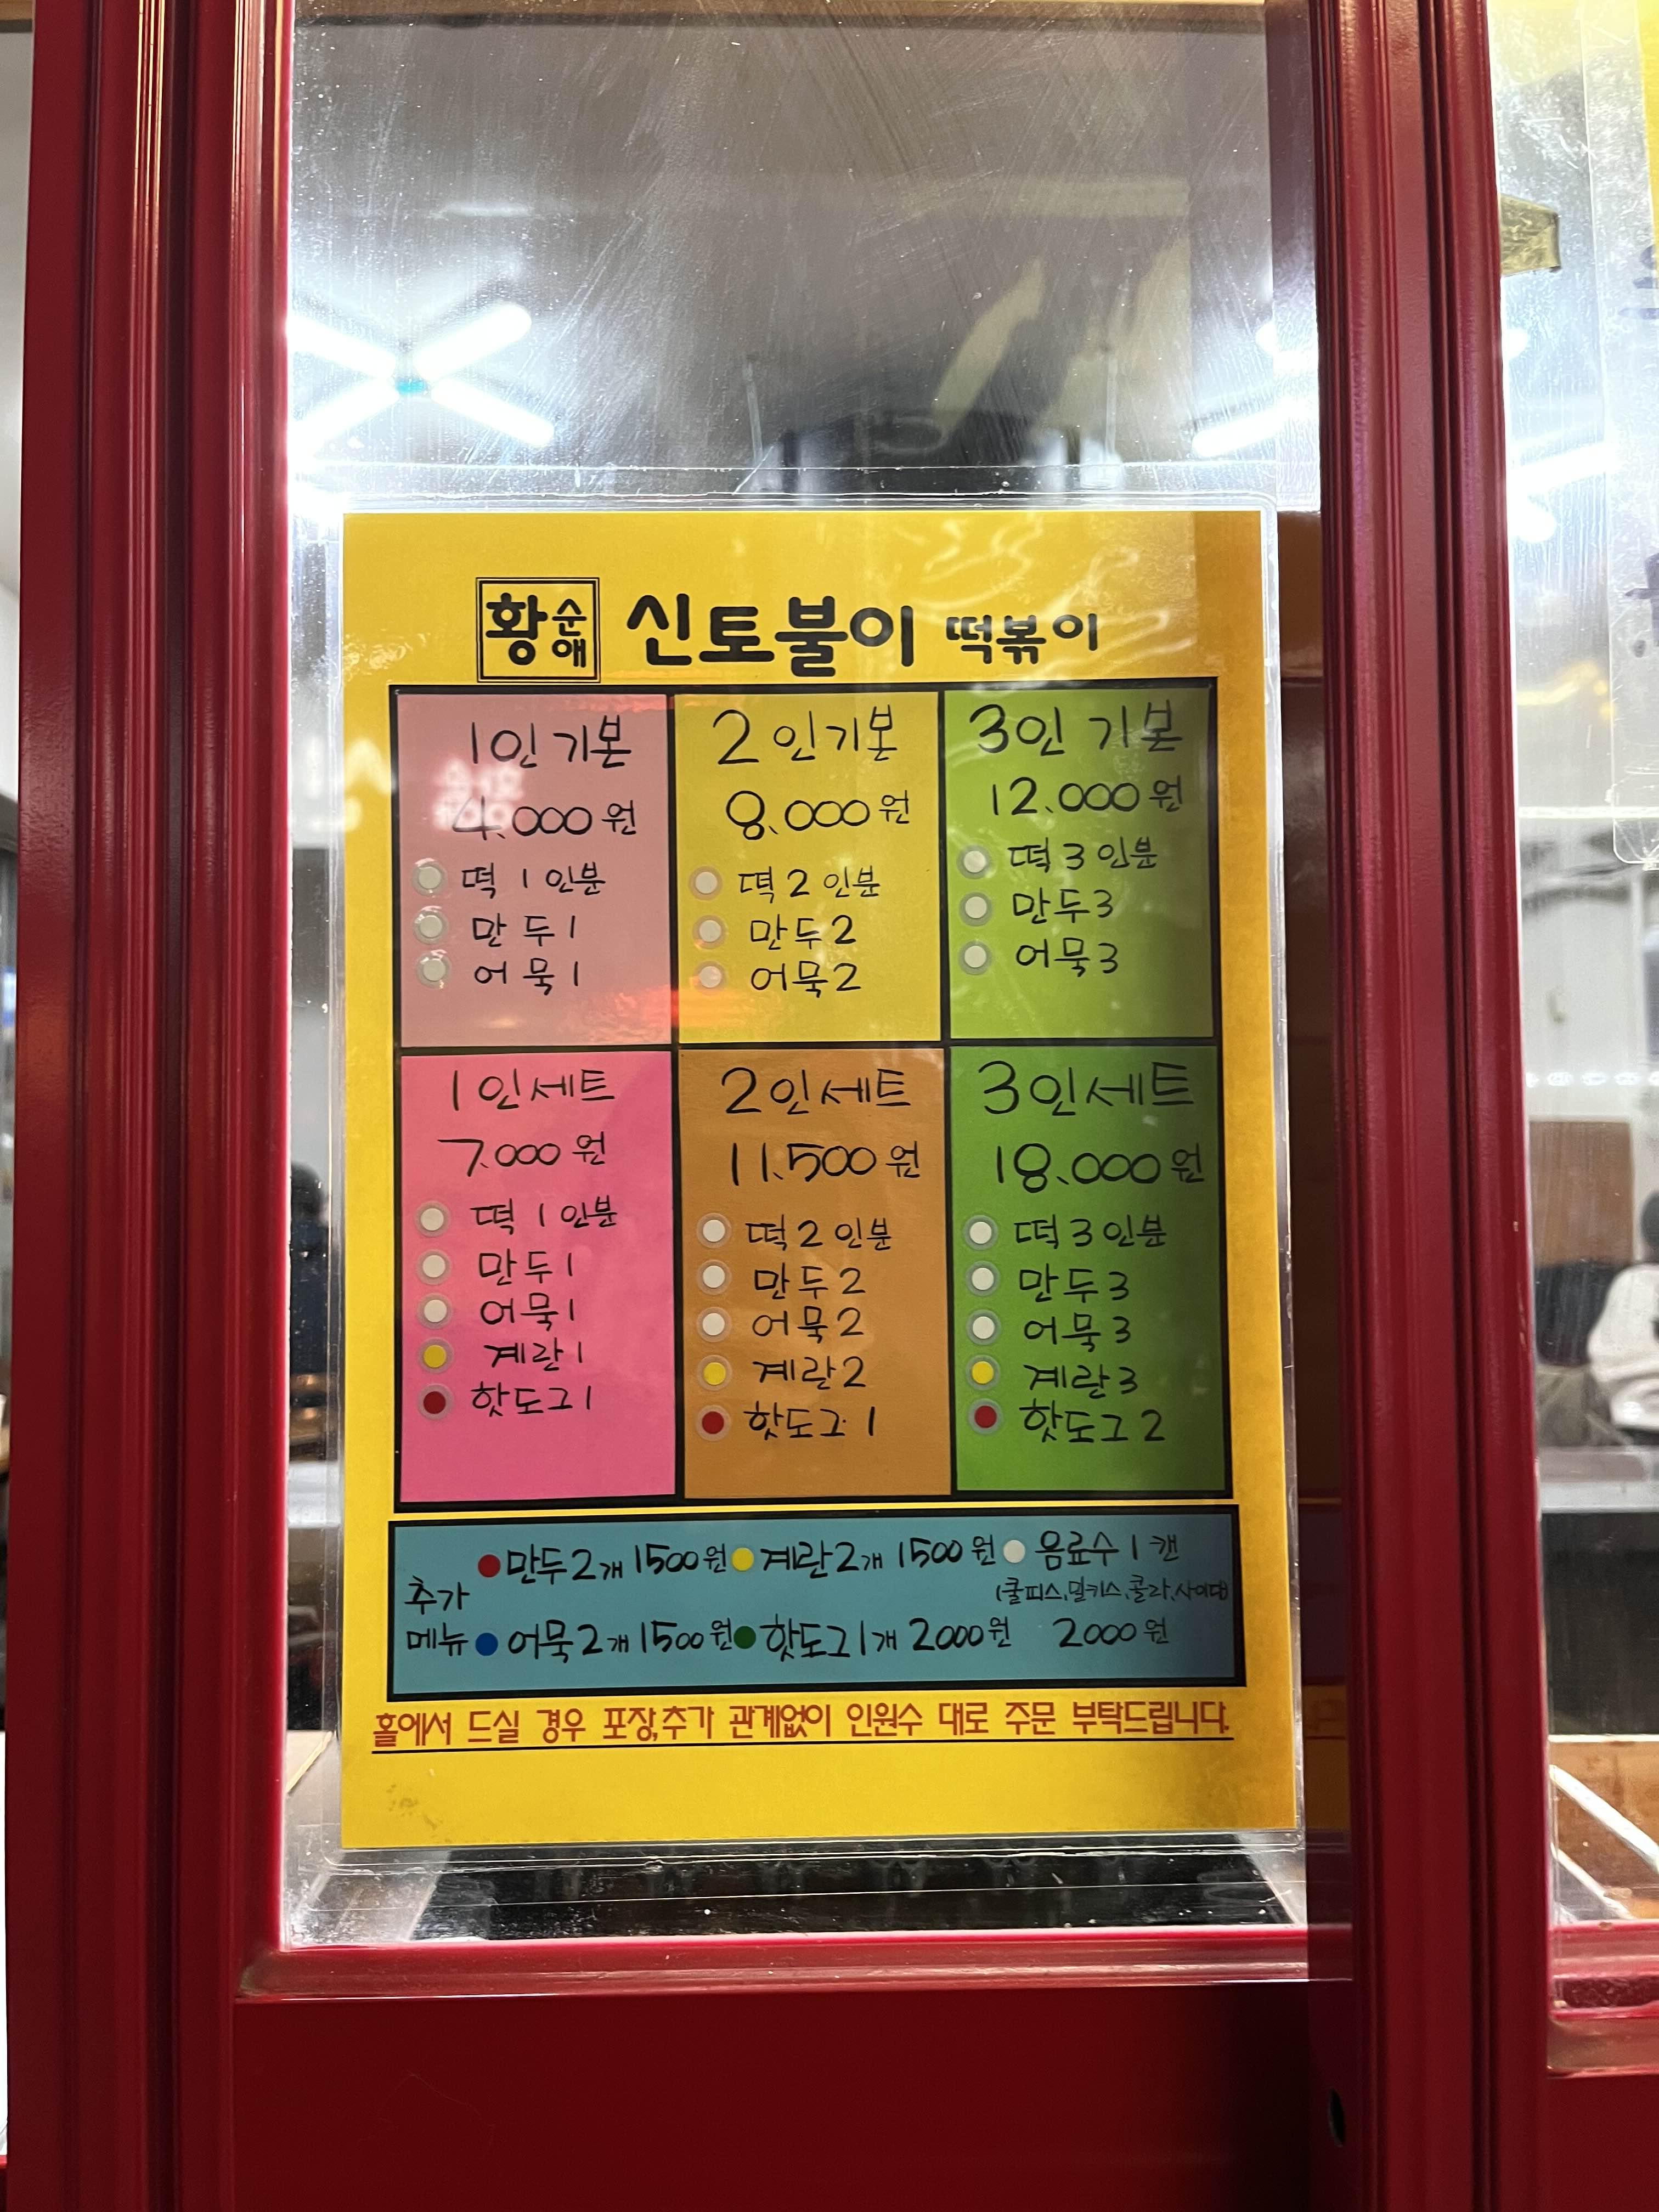 황순애 신토불이 떡볶이
1인 기본
4.000원
떡 1인분
만두1
어묵1
2인기본
8.000원
떡2인분
만두2
어묵2
3인 기본
12.000원
떡3인분
만두3
어묵3
1인세트
7.000원
떡 1인분
만두1
어묵1
계란1
핫도그1
2인세트
11.500원
떡2인분
만두2
어묵2
계란2
핫도그1
3인세트
18.000원
떡3인분
만두3
어묵3
계란3
핫도그2
추가
메뉴
만두2개 1500원 계란2개 1500원 음료수 1캔
(쿨피스,밀키스,콜라,사이다)
어묵2개 1500원 핫도그1개 2000원 2000원
홀에서 드실 경우 포장,추가 관계없이 인원수 대로 주문 부탁드립니다.